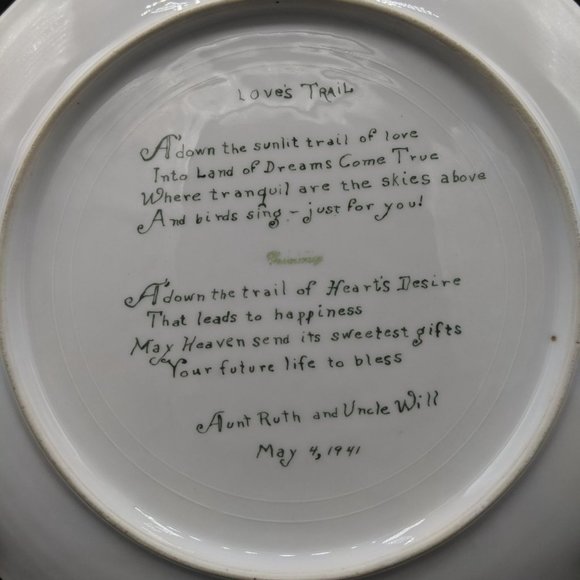 Love's Trail
A'down the sunlit trail of love
Into Land of Dreams Come True
Where tranquil are the skies above
And birds sing – just for you!
A'down the trail of Heart's Desire
That leads to happiness
May Heaven send its sweetest gifts
Your future life to bless
Aunt Ruth and Uncle Will
May 4, 1941